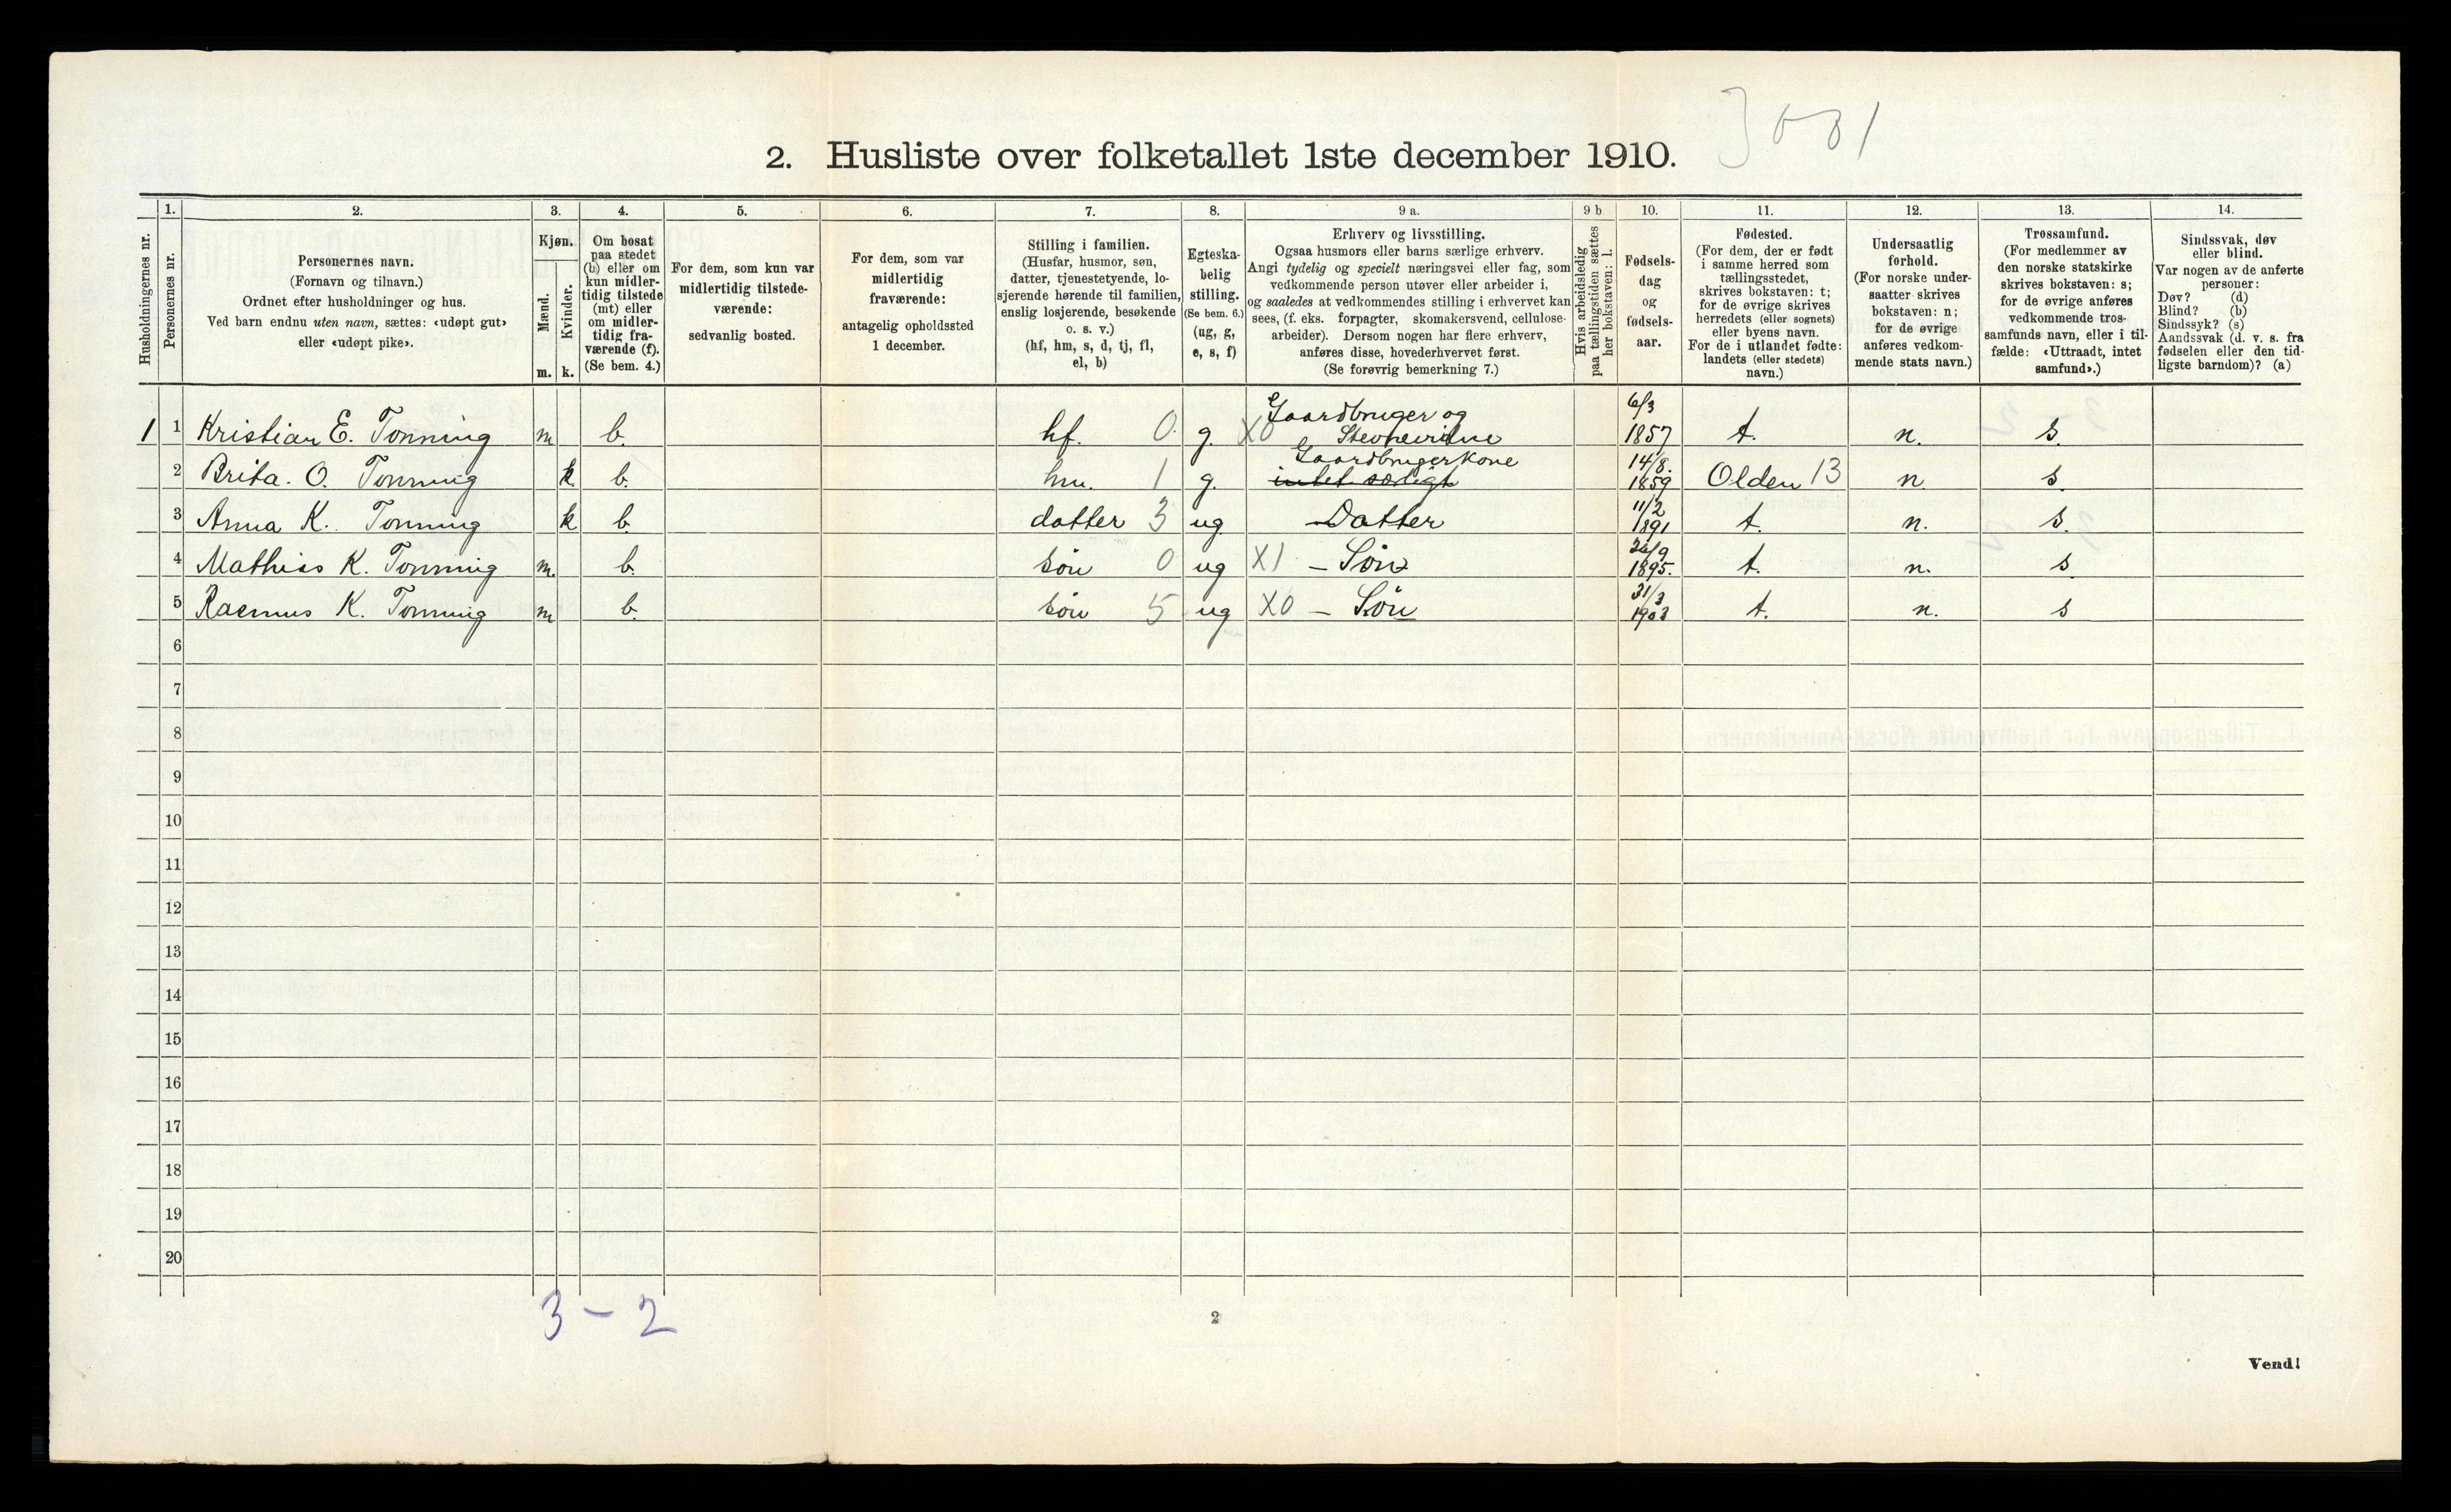 3001
2. Husliste over folketallet 1ste december 1910.
Husholdningernes nr.
1.
Personernes nr.
2.
Personernes navn.
(Fornavn og tilnavn.)
Ordnet efter husholdninger og hus.
Ved barn endnu uten navn, sættes: «udøpt gut»
eller «udøpt pike».
3.
Kjøn.
Mænd.
Kvinder.
m. k.
4.
Om bosat
paa stedet
(b) eller om
kun midler-
tidig tilstede
(mt) eller
om midler-
tidig fra-
værende (f).
(Se bem. 4.)
5.
For dem, som kun var
midlertidig tilstede-
værende:
sedvanlig bosted.
6.
For dem, som var
midlertidig
fraværende:
antagelig opholdssted
1 december.
7.
Stilling i familien.
(Husfar, husmor, søn,
datter, tjenestetyende, lo-
sjerende hørende til familien,
enslig losjerende, besøkende
o. s. v.)
(hf, hm, s, d, tj, fl,
el, b)
8.
Egteska-
belig
stilling.
(Se bem. 6.)
(ug, g,
e, s, f)
9 a.
Erhverv og livsstilling.
Ogsaa husmors eller barns særlige erhverv.
Angi tydelig og specielt næringsvei eller fag, som
vedkommende person utøver eller arbeider i,
og saaledes at vedkommendes stilling i erhvervet kan
sees, (f. eks. forpagter, skomakersvend, cellulose-
arbeider). Dersom nogen har flere erhverv,
anføres disse, hovederhvervet først.
(Se forøvrig bemerkning 7.)
9 b
Hvis arbeidsledig
paa tællingstiden sættes
her bokstaven: l.
10.
Fødsels-
dag
og
fødsels-
aar.
11.
Fødested.
(For dem, der er født
i samme herred som
tællingsstedet,
skrives bokstaven: t;
for de øvrige skrives
herredets (eller sognets)
eller byens navn.
For de i utlandet fødte:
landets (eller stedets)
navn.)
12.
Undersaatlig
forhold.
(For norske under-
saatter skrives
bokstaven: n;
for de øvrige
anføres vedkom-
mende stats navn.)
13.
Trossamfund.
(For medlemmer av
den norske statskirke
skrives bokstaven: s;
for de øvrige anføres
vedkommende tros-
samfunds navn, eller i til-
fælde: «Uttraadt, intet
samfund».)
14.
Sindssvak, døv
eller blind.
Var nogen av de anførte
personer:
Døv? (d)
Blind? (b)
Sindssyk? (s)
Aandssvak (d. v. s. fra
fødselen eller den tid-
ligste barndom)? (a)
1 1 Kristian E. Tonning m b. hf. 0. g. X0 Gaardbruger og 6/3 1857 t. n. s.
2 Brita. O. Tonning k b. hm. 1 g. Gaardbrugerkone intet særligt 14/8. 1859 Olden 13 n. s.
3 Anna K. Tonning k b. datter 3 ug Datter 11/2 1891 t. n. s.
4 Mathias K. Tonning m. b. søn 0 ug X1 – Søn 26/9 1895. t. n. s.
5 Rasmus K. Tonning m b. søn 5 ug X0 – Søn 31/3 1903 t. n. s
6
7
8
9
10
11
12
13
14
15
16
17
18
19
20
3 – 2
2
Vend!